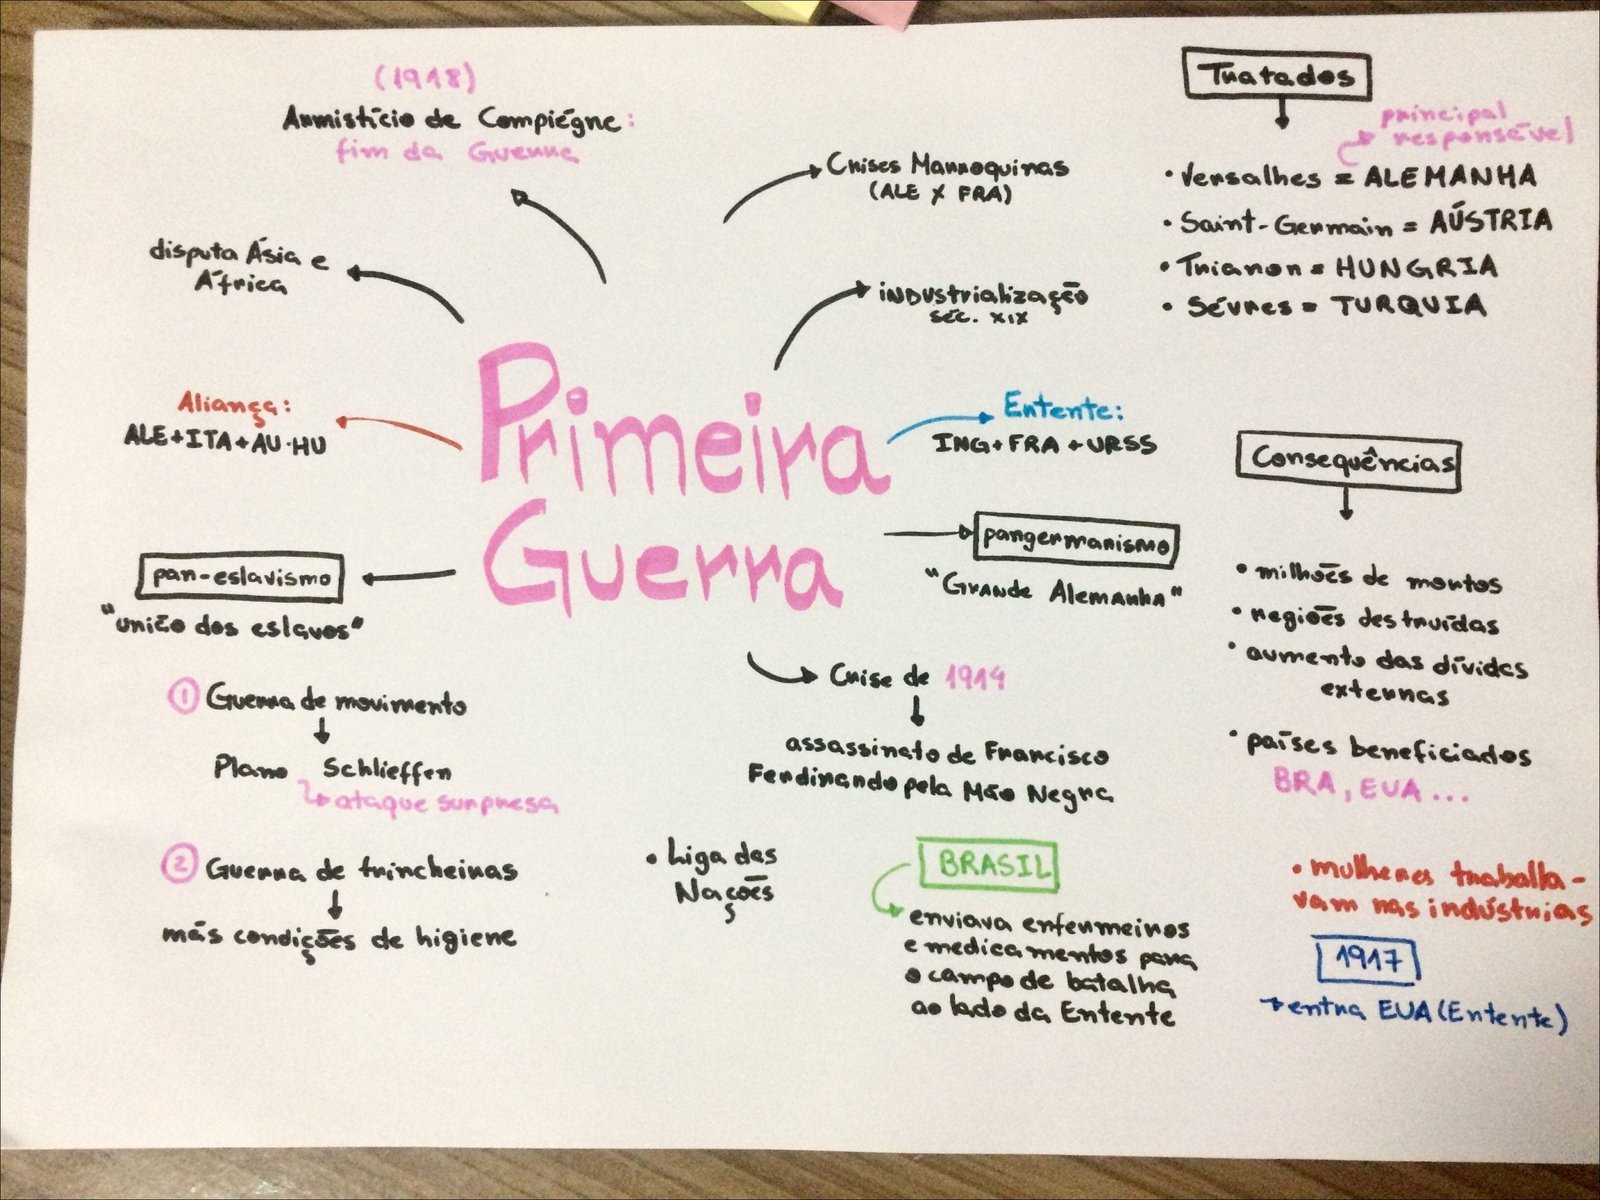 (1918)
Armistício de Compiégne:
fim da Guerra
disputa Ásia e
África
Aliança:
ALE+ITA+AU-HU
pan-eslavismo
"união dos eslavos"
Crises Marroquinas
(ALE X FRA)
industrialização
séc. XIX
Primeira
Guerra
Entente:
ING+FRA+URSS
pangermanismo
"Grande Alemanha"
Crise de 1914
assassinato de Francisco
Ferdinando pela Mão Negra
① Guerra de movimento
Plano Schlieffen
ataque surpresa
② Guerra de trincheiras
más condições de higiene
• Liga das
Nações
BRASIL
enviava enfermeiros
e medicamentos para
o campo de batalha
ao lado da Entente
Tratados
principal
responsável
• Versalhes = ALEMANHA
• Saint-Germain = AÚSTRIA
• Trianon = HUNGRIA
• Sévres = TURQUIA
Consequências
• milhões de mortos
• regiões destruídas
• aumento das dívidas
externas
• países beneficiados
BRA, EUA...
• mulheres traballa-
vam nas indústrias
1917
entra EUA (Entente)